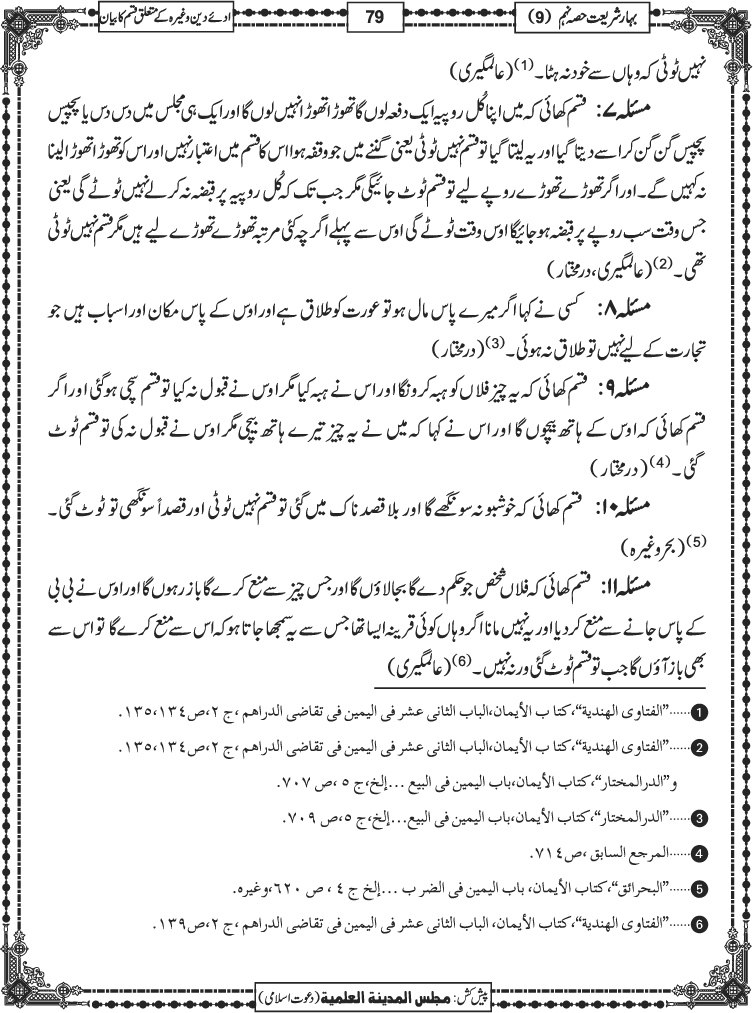 بہار شریعت حصہ نہم (9)
79
ادائے دین وغیرہ کے متعلق قسم کا بیان
نہیں ٹوٹی کہ وہاں سے خود نہ ہٹا۔(1) (عالمگیری)
مسئلہ ۷: قسم کھائی کہ میں اپنا کُل روپیہ ایک دفعہ لوں گا تھوڑا تھوڑا نہیں لوں گا اور ایک ہی مجلس میں دس دس یا پچیس
پچیس گن گن کر اسے دیتا گیا اور یہ لیتا گیا تو قسم نہیں ٹوٹی یعنی گننے میں جو وقفہ ہوا اس کا قسم میں اعتبار نہیں اور اس کو تھوڑا تھوڑا لینا
نہ کہیں گے۔ اور اگر تھوڑے تھوڑے روپے لیے تو قسم ٹوٹ جائیگی مگر جب تک کہ کُل روپیہ پر قبضہ نہ کرلے نہیں ٹوٹے گی یعنی
جس وقت سب روپے پر قبضہ ہو جائیگا اوس وقت ٹوٹے گی اوس سے پہلے اگر چہ کئی مرتبہ تھوڑے تھوڑے لیے ہیں مگر قسم نہیں ٹوٹی
تھی۔(2) (عالمگیری، درمختار)
مسئلہ ۸: کسی نے کہا اگر میرے پاس مال ہو تو عورت کو طلاق ہے اور اوس کے پاس مکان اور اسباب ہیں جو
تجارت کے لیے نہیں تو طلاق نہ ہوئی۔(3) (درمختار)
مسئلہ ۹: قسم کھائی کہ یہ چیز فلاں کو ہبہ کرونگا اور اس نے ہبہ کیا مگر اوس نے قبول نہ کیا تو قسم سچی ہوگئی اور اگر
قسم کھائی کہ اوس کے ہاتھ بیچوں گا اور اس نے کہا کہ میں نے یہ چیز تیرے ہاتھ بیچی مگر اوس نے قبول نہ کی تو قسم ٹوٹ
گئی۔(4) (درمختار)
مسئلہ ۱۰: قسم کھائی کہ خوشبو نہ سونگھے گا اور بلا قصد ناک میں گئی تو قسم نہیں ٹوٹی اور قصداً سونگھی تو ٹوٹ گئی۔
(5) (بحر وغیرہ)
مسئلہ ۱۱: قسم کھائی کہ فلاں شخص جو حکم دے گا بجا لاؤں گا اور جس چیز سے منع کرے گا باز رہوں گا اور اوس نے بی بی
کے پاس جانے سے منع کر دیا اور یہ نہیں مانا اگر وہاں کوئی قرینہ ایسا تھا جس سے یہ سمجھا جاتا ہو کہ اس سے منع کرے گا تو اس سے
بھی باز آؤں گا جب تو قسم ٹوٹ گئی ورنہ نہیں۔(6) (عالمگیری)
1......”الفتاوى الهندية“، كتاب الأيمان، الباب الثانى عشر فى اليمين فى تقاضى الدراهم، ج ٢، ص ١٣٤، ١٣٥.
2......”الفتاوى الهندية“، كتاب الأيمان، الباب الثانى عشر فى اليمين فى تقاضى الدراهم، ج ٢، ص ١٣٤، ١٣٥.
و ”الدرالمختار“، كتاب الأيمان، باب اليمين فى البيع ...إلخ، ج ٥، ص ٧٠٧.
3......”الدرالمختار“، كتاب الأيمان، باب اليمين فى البيع...إلخ، ج ٥، ص ٧٠٩.
4......المرجع السابق، ص ٧١٤.
5......”البحرائق“، كتاب الأيمان، باب اليمين فى الضرب ...إلخ ج ٤، ص ٦٢٠، وغيره.
6......”الفتاوى الهندية“، كتاب الأيمان، الباب الثانى عشر فى اليمين فى تقاضى الدراهم، ج ٢، ص ١٣٩.
پیش کش: مجلس المدينة العلمية (دعوت اسلامی)